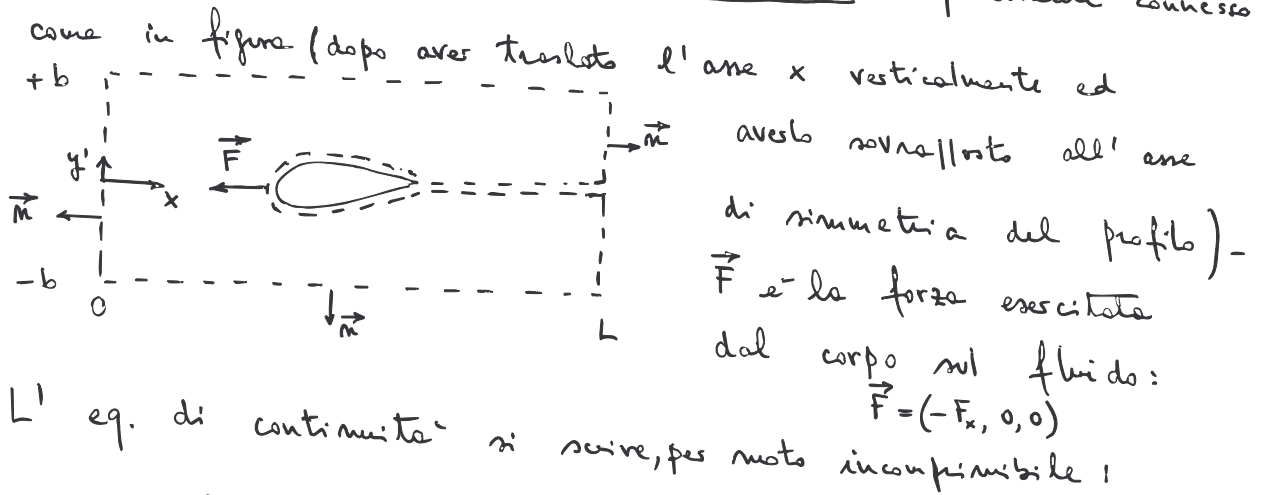 connesso
come in figura (dopo aver traslato l'asse x verticalmente ed
averlo sovrapposto all'asse
di simmetria del profilo)-
F⃗ è la forza esercitata
dal corpo sul fluido:
F⃗ = (-Fx, 0, 0)
+b
y'
x
n⃗
F⃗
n⃗
-b
0
n⃗
L
L' eq. di continuità si scrive, per moto incomprimibile :